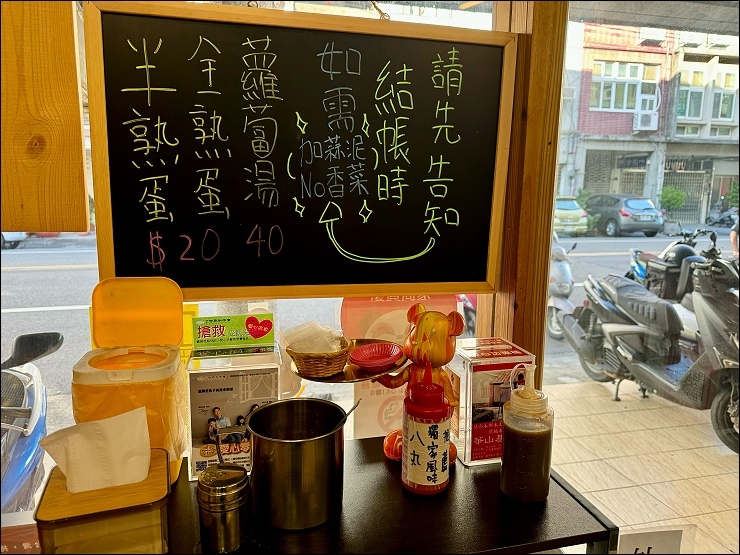 半熟蛋
全熟蛋
$20
蘿蔔湯
40
如需
(加蒜泥
No香菜)
結帳時
請先告知
搶救
獨家風味
八丸